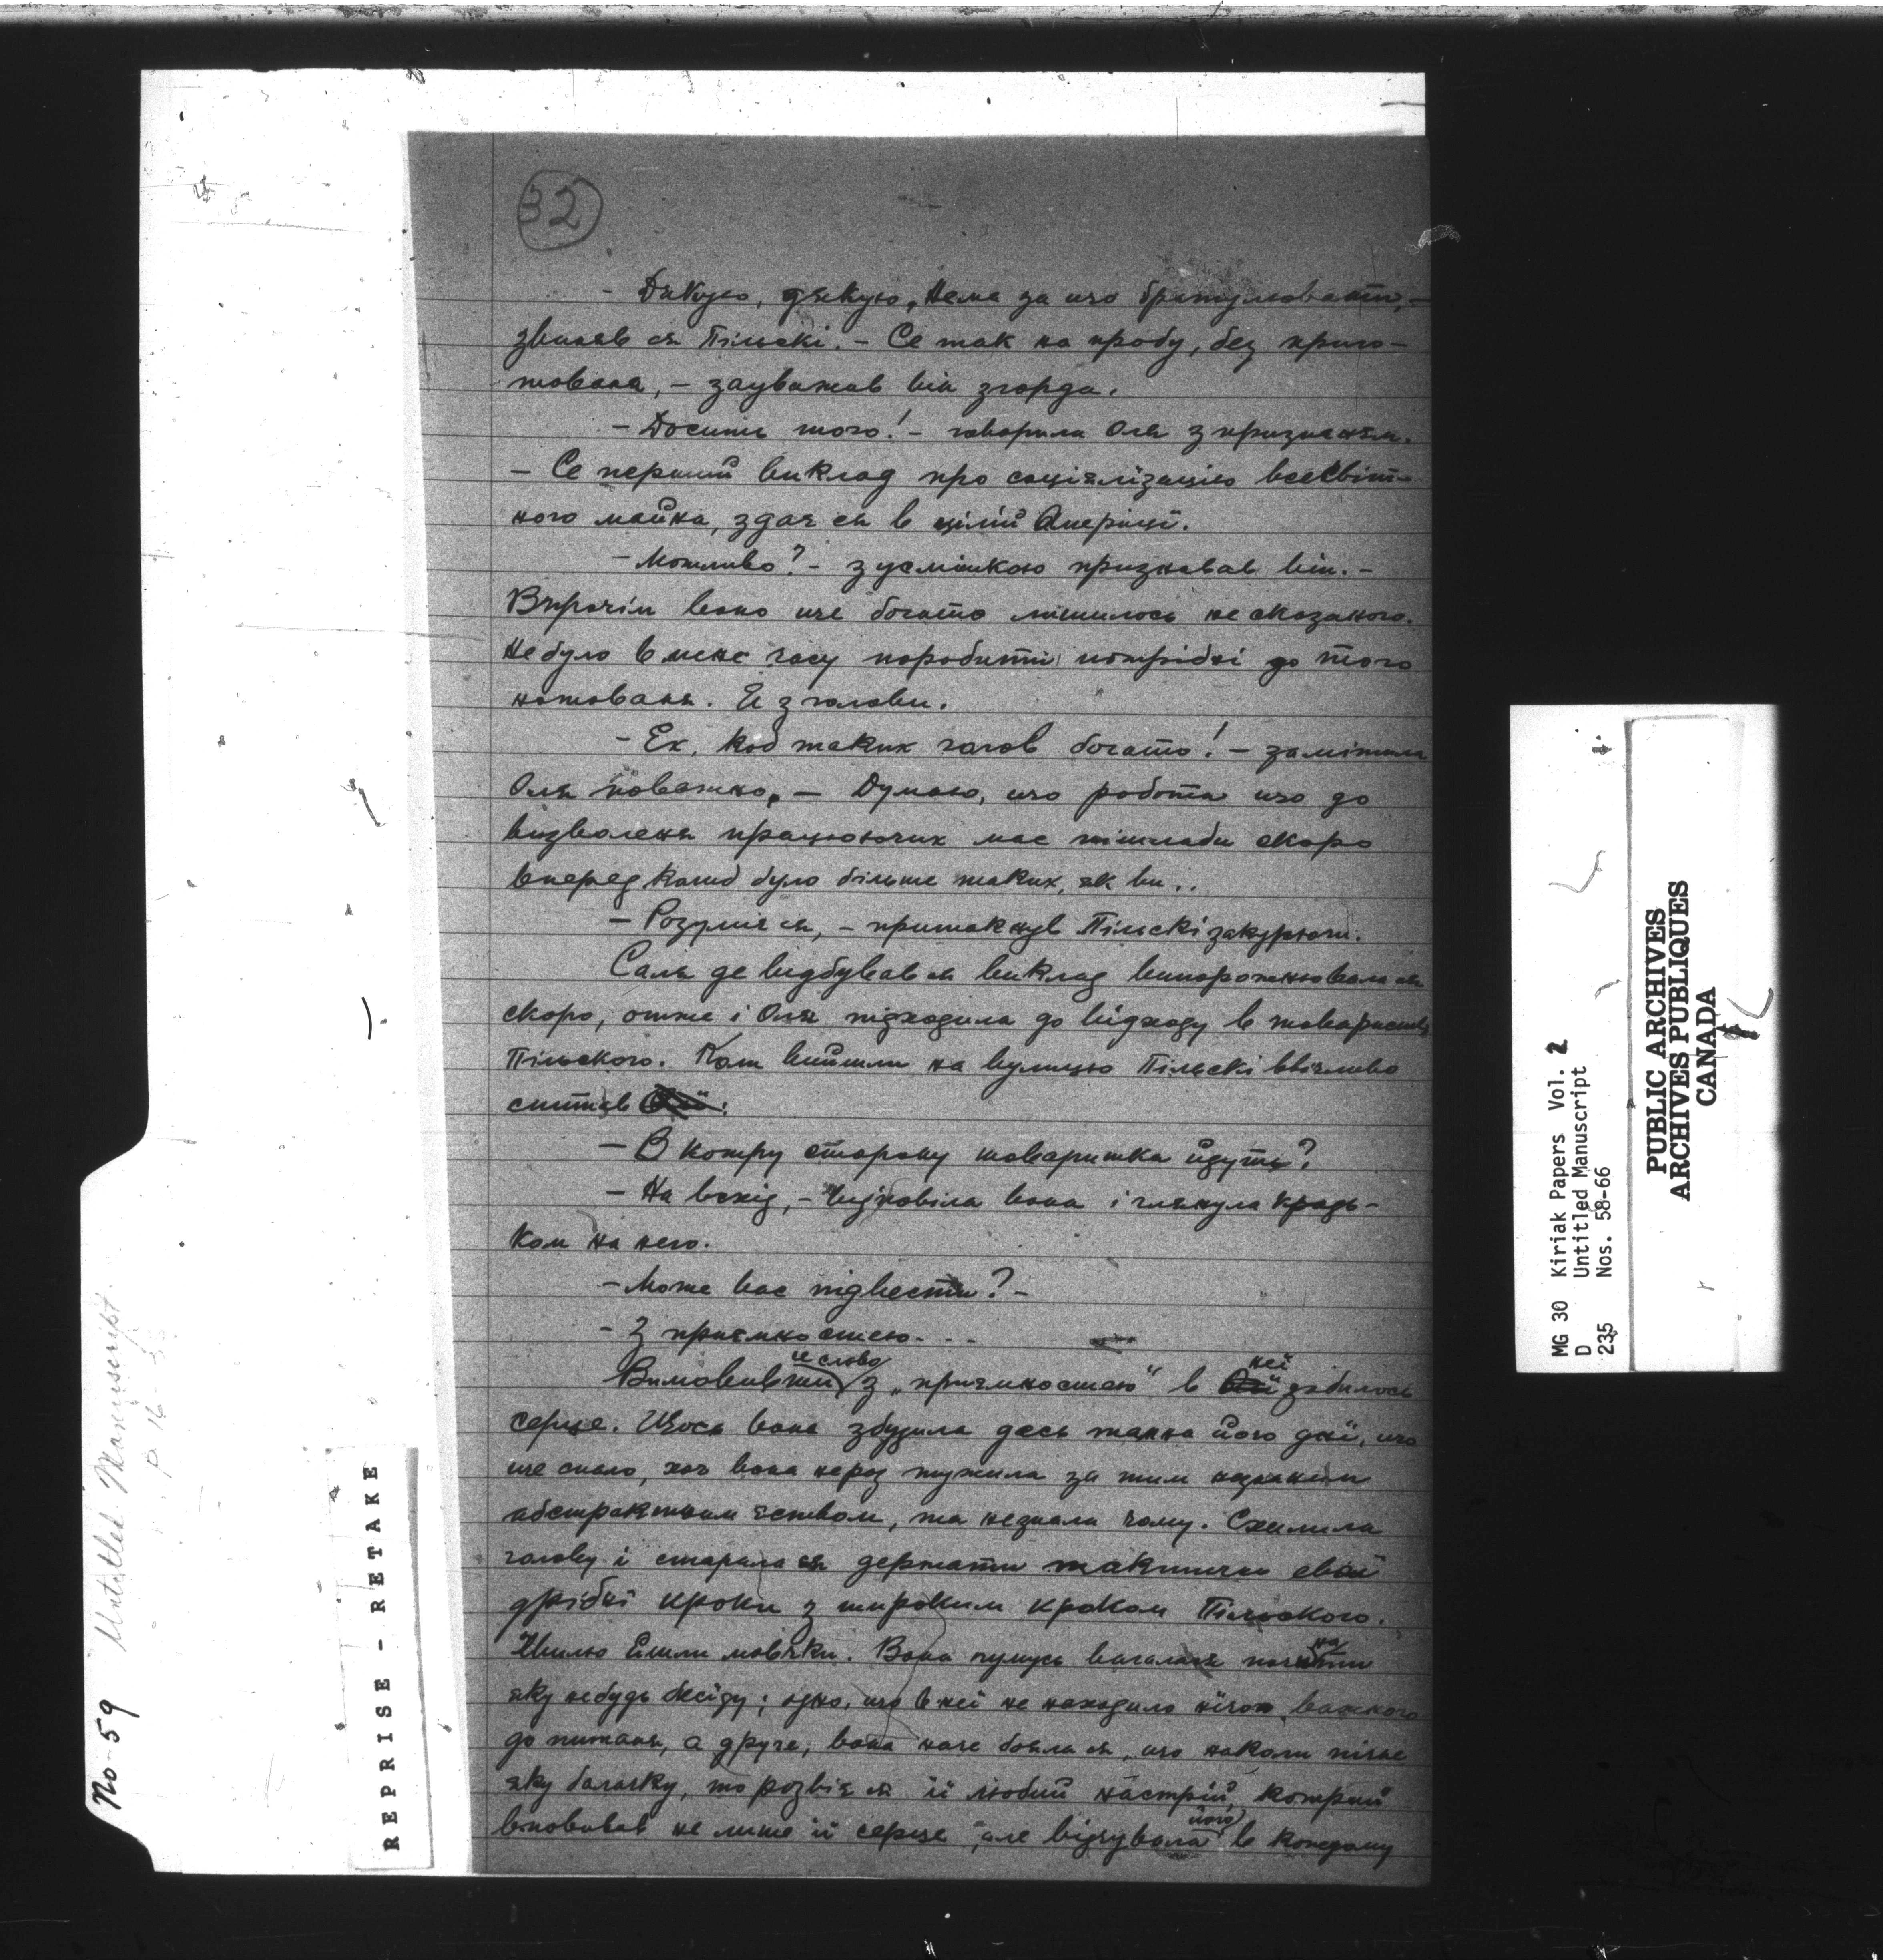 32
- Дякую, дякую. Нема за що братулювати, -
звиняв ся Пільскі. - Се так на пробу, без приго-
тованя, - зауважив він згорда.
- Досить того! - говорила Оля з признанєм.
- Се перший виклад про соціялізацію всесвіт-
ного майна, здає ся в цілій Америці.
- Можливо? - з усмішкою признавав він. -
Впрочім воно ще богато лишилось не сказаного.
Не було в мене часу поробити потрібні до того
нотованя. Й з голови.
- Ех, коб таких голов богато! - замітила
Оля поважно. - Думаю, що робота що до
визволеня працюючих мас пішлаби скоро
вперед колиб було більше таких, як ви..
- Розуміє ся, - притакнув Пільскі закурюючи.
Саля де відбував ся виклад випорожнювала ся
скоро, отже і Оля підходила до відходу в товаристві
Пільского. Коли вийшли на вулицю Пільскі ввічливо
спитав :
- В котру сторону товаришка йдуть?
- На всхід, - відповіла вона і глянула крадь-
ком на него.
- Може вас підвести? -
- З приємностею. . .
Вимовивши се слово з „приємностею" в неї забилось
серце. Щось вона збудила десь там на його дні, що
ще спало, хоч вона нераз тужила за тим незнаним
абстрактним єством, та незнала чому. Схилила
голову і старала ся держати тактично свої
дрібні кроки з широким кроком Пільского.
Хвилю йшли мовчки. Вона чомусь вагалася почати
яку небудь бесіду; одно, що в неї не находило нічого важного
до питаня, а друге, вона наче бояла ся, що наколи пічне
яку балачку, то розвіє ся її любий настрій, котрий
вповивав не лише її серце, але відчувала його в кождому
No 59 Untitled Manuscript
REPRISE - RETAKE
MG 30 Kiriak Papers Vol. 2
D Untitled Manuscript
235 Nos. 58-66
PUBLIC ARCHIVES
ARCHIVES PUBLIQUES
CANADA